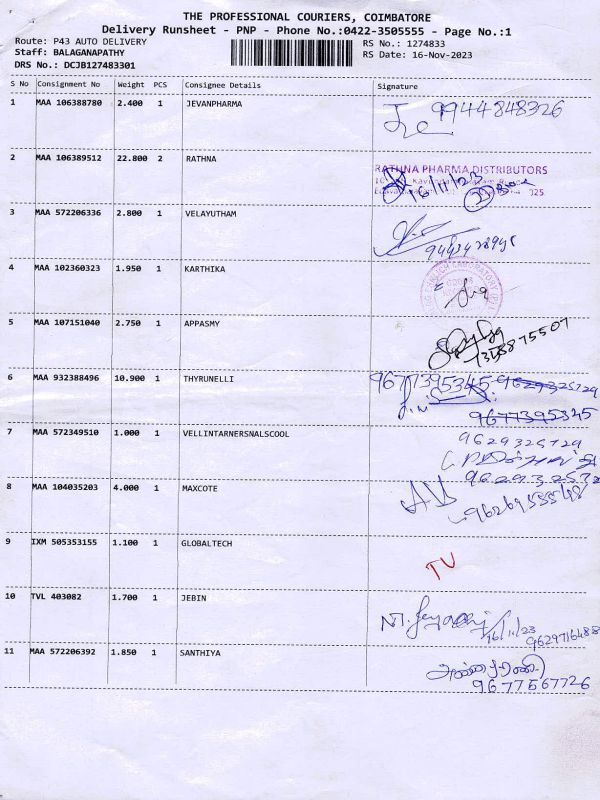 THE PROFESSIONAL COURIERS, COIMBATORE
Delivery Runsheet - PNP - Phone No.:0422-3505555 - Page No.:1
Route: P43 AUTO DELIVERY
RS No.: 1274833
Staff: BALAGANAPATHY
RS Date: 16-Nov-2023
DRS No.: DCJB127483301
S No Consignment No Weight PCS Consignee Details Signature
1 MAA 106388780 2.400 1 JEVANPHARMA
9944848326
2 MAA 106389512 22.800 2 RATHNA
RATHNA PHARMA DISTRIBUTORS
16/11/23
3 MAA 572206336 2.800 1 VELAYUTHAM
4 MAA 102360323 1.950 1 KARTHIKA
5 MAA 107151040 2.750 1 APPASMY
6 MAA 932388496 10.900 1 THYRUNELLI
9677395345
9677395345
7 MAA 572349510 1.000 1 VELLINTARNERSNALSCOOL
9629325729
8 MAA 104035203 4.000 1 MAXCOTE
9 IXM 505353155 1.100 1 GLOBALTECH
TV
10 TVL 403082 1.700 1 JEBIN
16/11/23
9629716488
11 MAA 572206392 1.850 1 SANTHIYA
9677567726